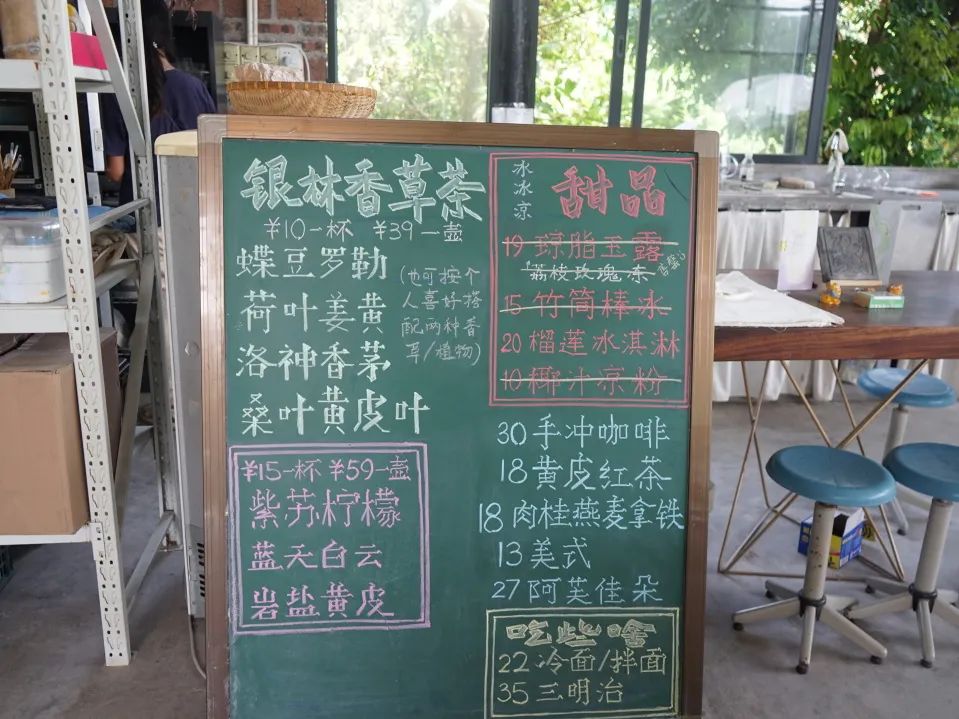 银林香草茶
¥10一杯 ¥39一壶
蝶豆罗勒
荷叶姜黄
洛神香茅
桑叶黄皮叶
(也可按个
人喜好搭
配两种香
草/植物)
¥15一杯 ¥59一壶
紫苏柠檬
蓝天白云
岩盐黄皮
冰冰凉
甜品
19 琼脂玉露
荔枝玫瑰冻
15 竹筒棒冰
20 榴莲冰淇淋
10 椰汁凉粉
30 手冲咖啡
18 黄皮红茶
18 肉桂燕麦拿铁
13 美式
27 阿芙佳朵
吃些啥
22 冷面/拌面
35 三明治